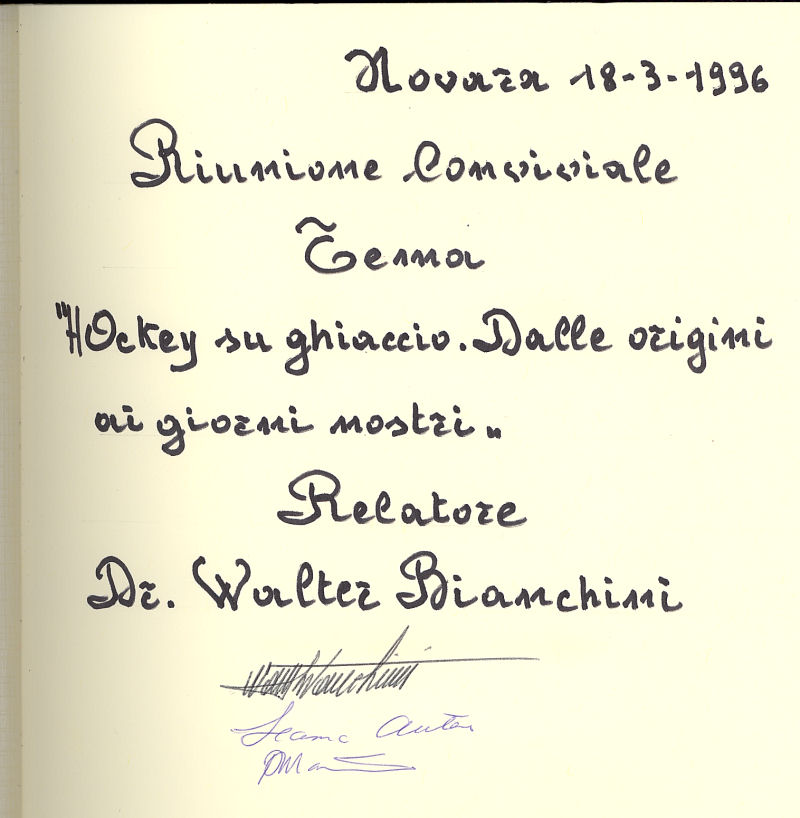 Novara 18-3-1996
Riunione Conviviale
Tema
"HOckey su ghiaccio. Dalle origini
ai giorni nostri„
Relatore
Dr. Walter Bianchini